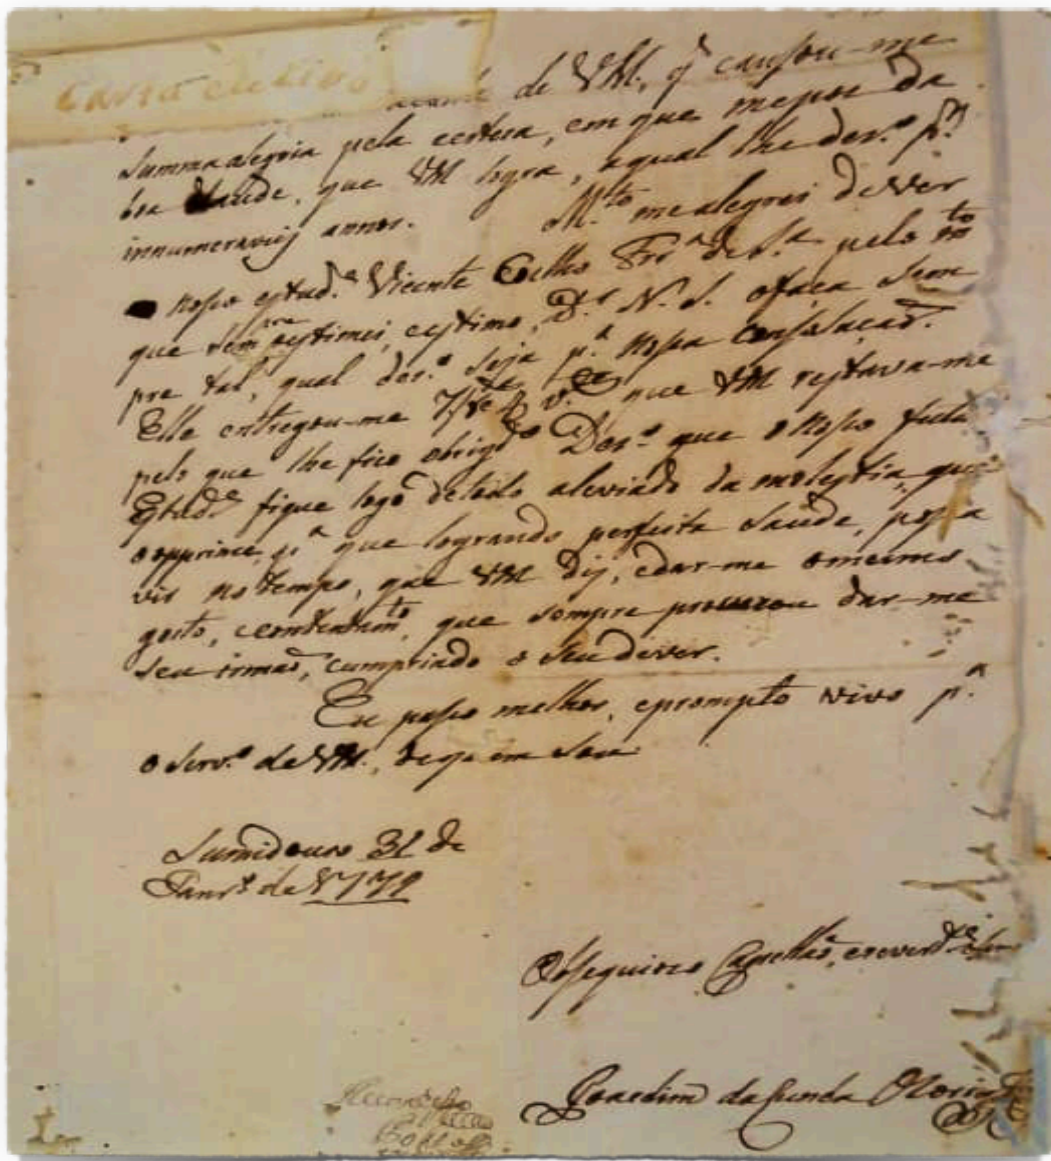 de VM, q̃ causou-me
summa alegria pela certesa, em que me poe da
boa saude, que VM logra, a qual lhe dez.º p.ʳ
innumeraveis annos. M.ᵗᵒ me alegrei de ver
o nosso estud.ᵉ Vicente Coelho pelo m.ᵗᵒ
que sempre estimei, e estimo, D.ˢ N. S. o faça sem
pre tal, qual dez.º seja p.ᵃ nossa consolação.
Elle entregou-me que VM restava-me
pelo que lhe fico obrig.ᵈᵒ Dez.º que o nosso futu
Estud.ᵉ fique logo de todo aleviado da molestia, que
o opprime, p.ᵃ que logrando perfeita saude, possa
vir no tempo, que VM diz, e dar-me o mesmo
gosto, e contentam.ᵗᵒ, que sempre procurou dar-me
seu irmaõ, cumprindo o seu dever.
Eu passo melhor, e prompto vivo p.ᵃ
o serv.º de VM., de q̃ em sou
Sumidouro 31 de
Janr.º de 1779
Obsequioso Capellaõ, e
Joachim da Cunha Ozorio